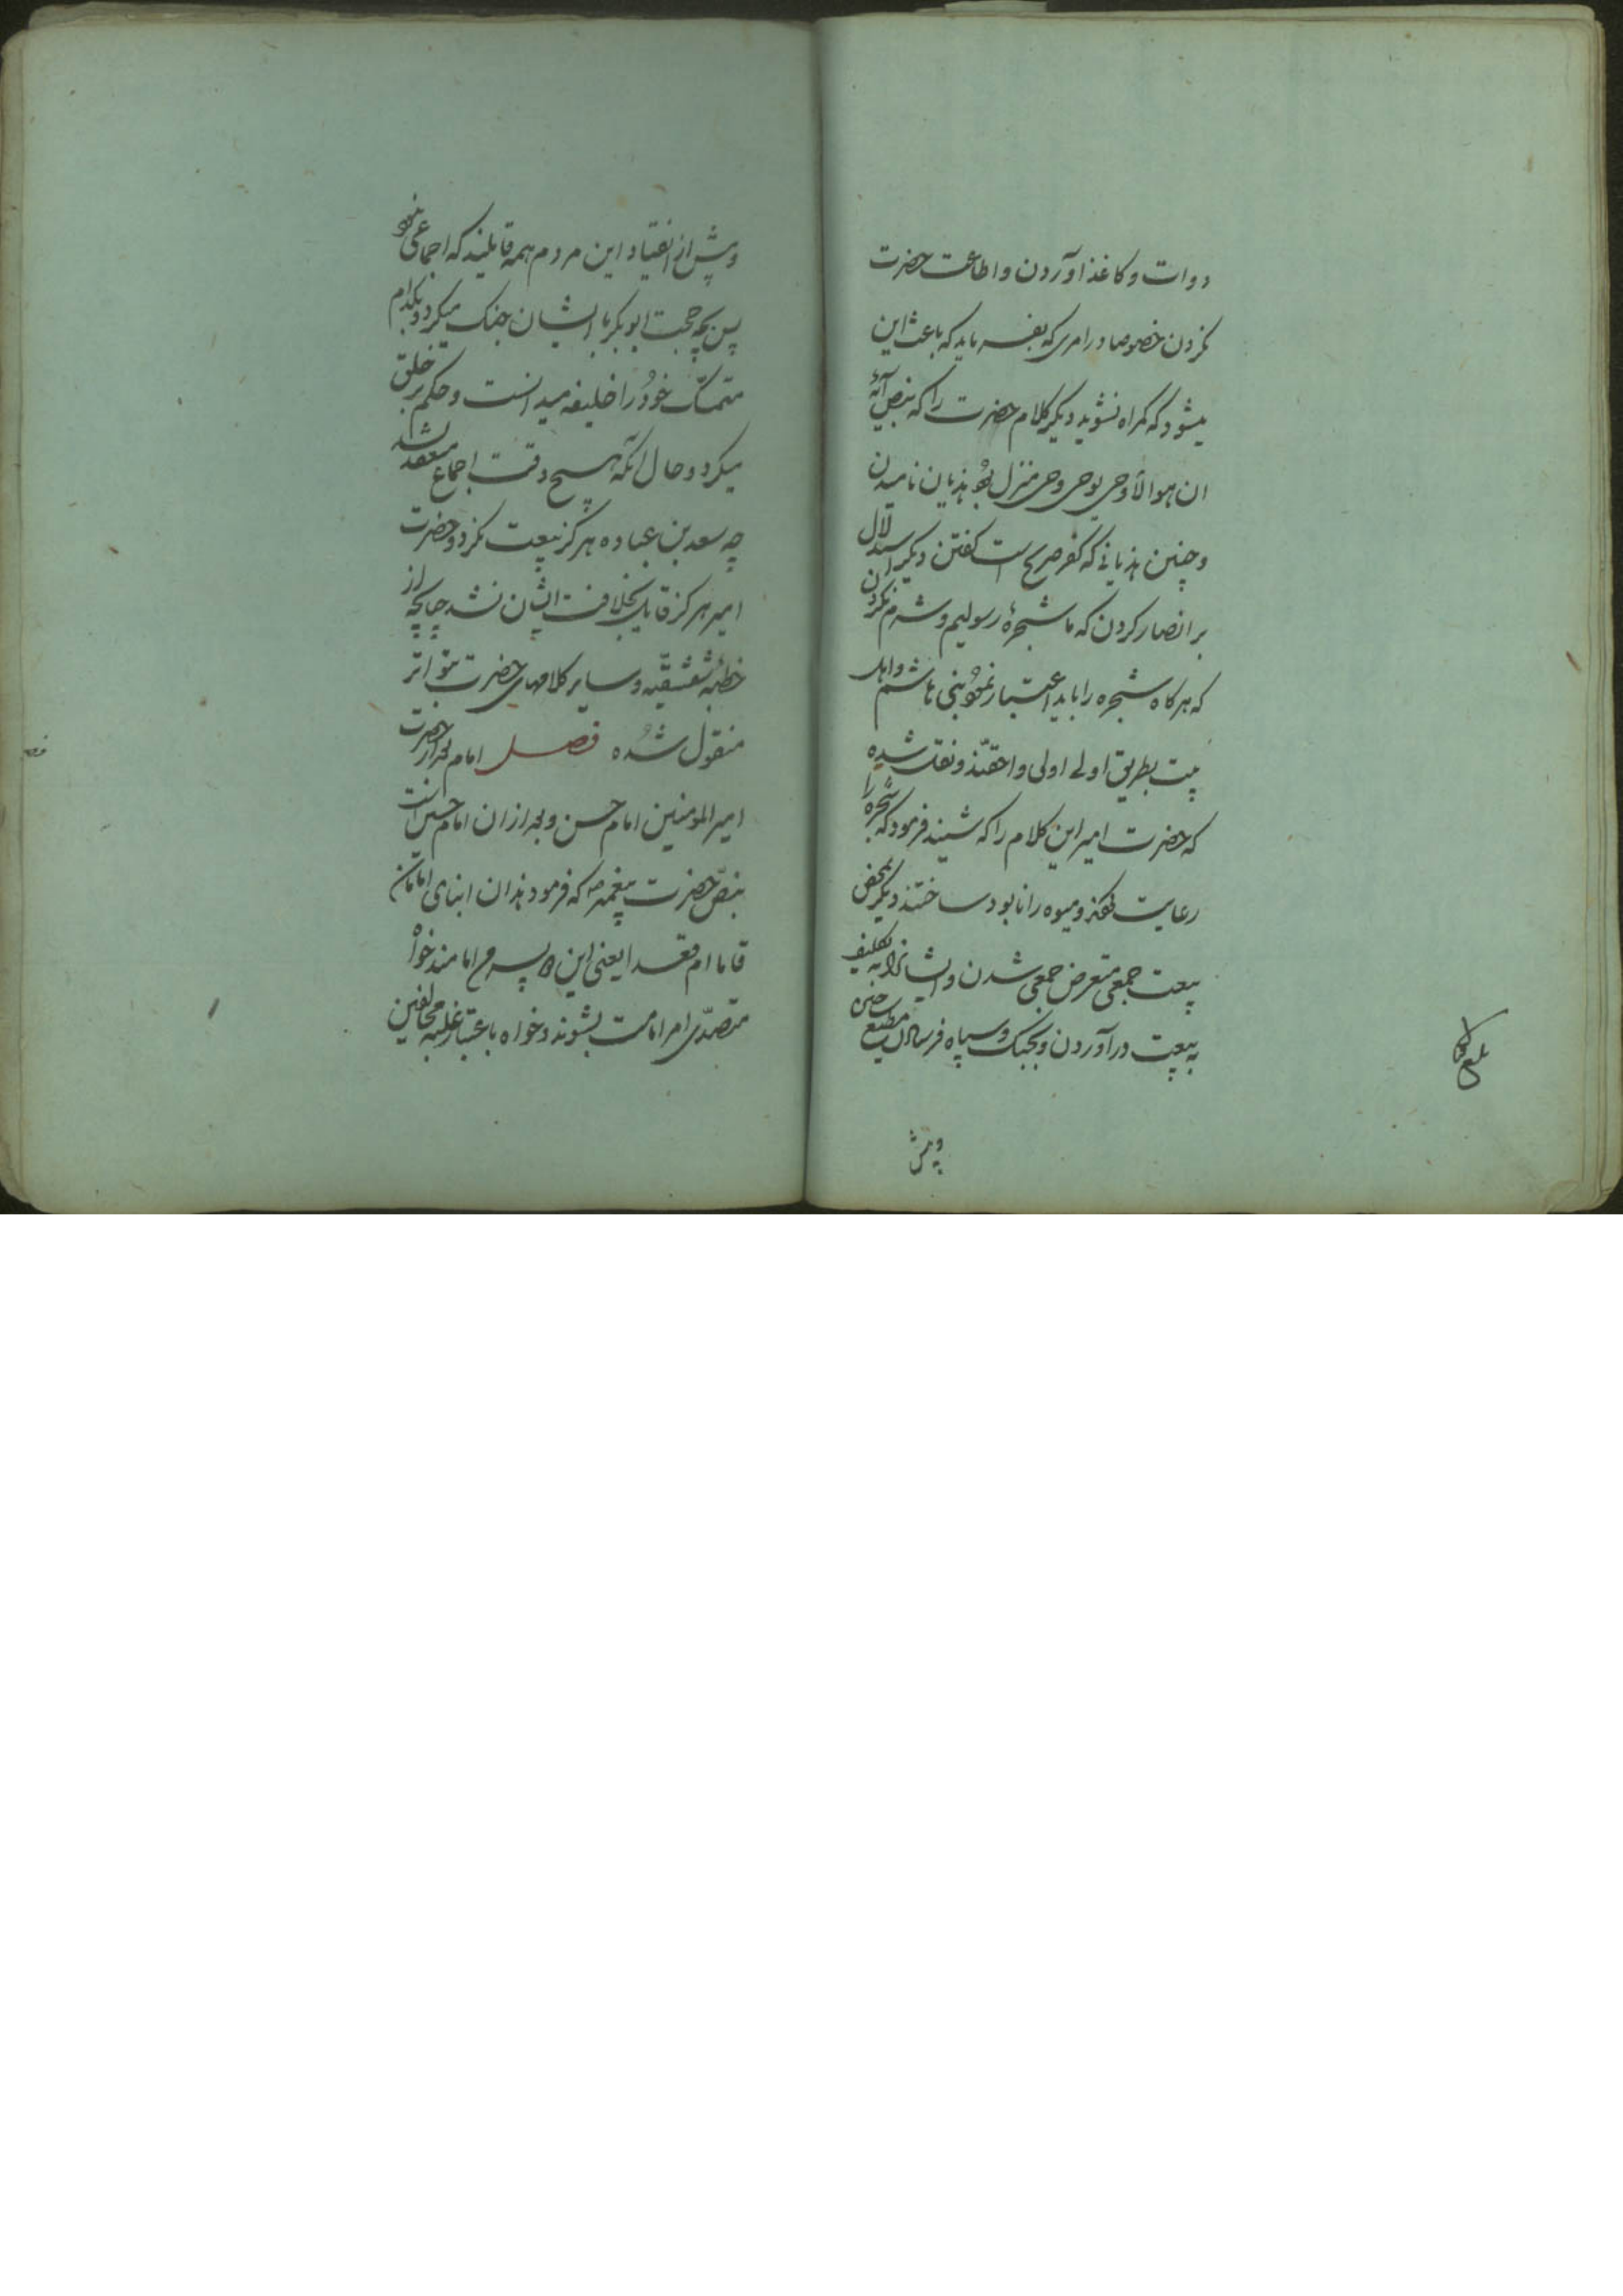 دوات و کاغذ آوردن و اطاعت حضرت
نکردن خصوصا در امری که بفرماید که باعث این
میشود که گمراه نشوید دیگر کلام حضرت را که بنص آیهٔ
ان هو الا وحی یوحی وحی منزل بود هذیان نامیدن
و چنین هذیانی که کفر صریح است گفتن دیگر استدلال
بر انصار کردن که ما شجرهٔ رسولیم و شرم نکردن از آن
که هرگاه شجره را باید اعتبار نمود بنی هاشم و اهل
بیت بطریق اولی اولی و احقند و نقل شده
که حضرت امیر این کلام را که شنید فرمود که شجره را
رعایت کردند و میوه را نابود ساختند دیگر بمحض
بیعت جمعی متعرض جمعی شدن و ایشانرا به تکلیف
به بیعت در آوردن و بجنک و سپاه فرستادن مطیع
وپیش
بلغ
وپیش از انقیاد این مردم همه قایلند که اجماعی نبود
پس بچه حجت ابوبکر با ایشان جنک میکرد و بکدام
متمسّک خود را خلیفه میدانست و حکم بر خلق
میکرد و حال آنکه هیچ وقت اجماع منعقد نشد
چه سعد بن عباده هرگز بیعت نکرد و حضرت
امیر هرگز قایل بخلافت ایشان نشد چنانچه از
خطبهٔ شقشقیّه و سایر کلامهای حضرت بتواتر
منقول شده فصل امام بعد از حضرت
امیر المومنین امام حسن و بعد از ان امام حسین است
بنصّ حضرت پیغمبر ص که فرمود هذان ابنای امامان
قاما ام قعدا یعنی این دو پسر من امامند خواه
متصدّی امر امامت بشوند و خواه باعتبار غلبهٔ مخالفین